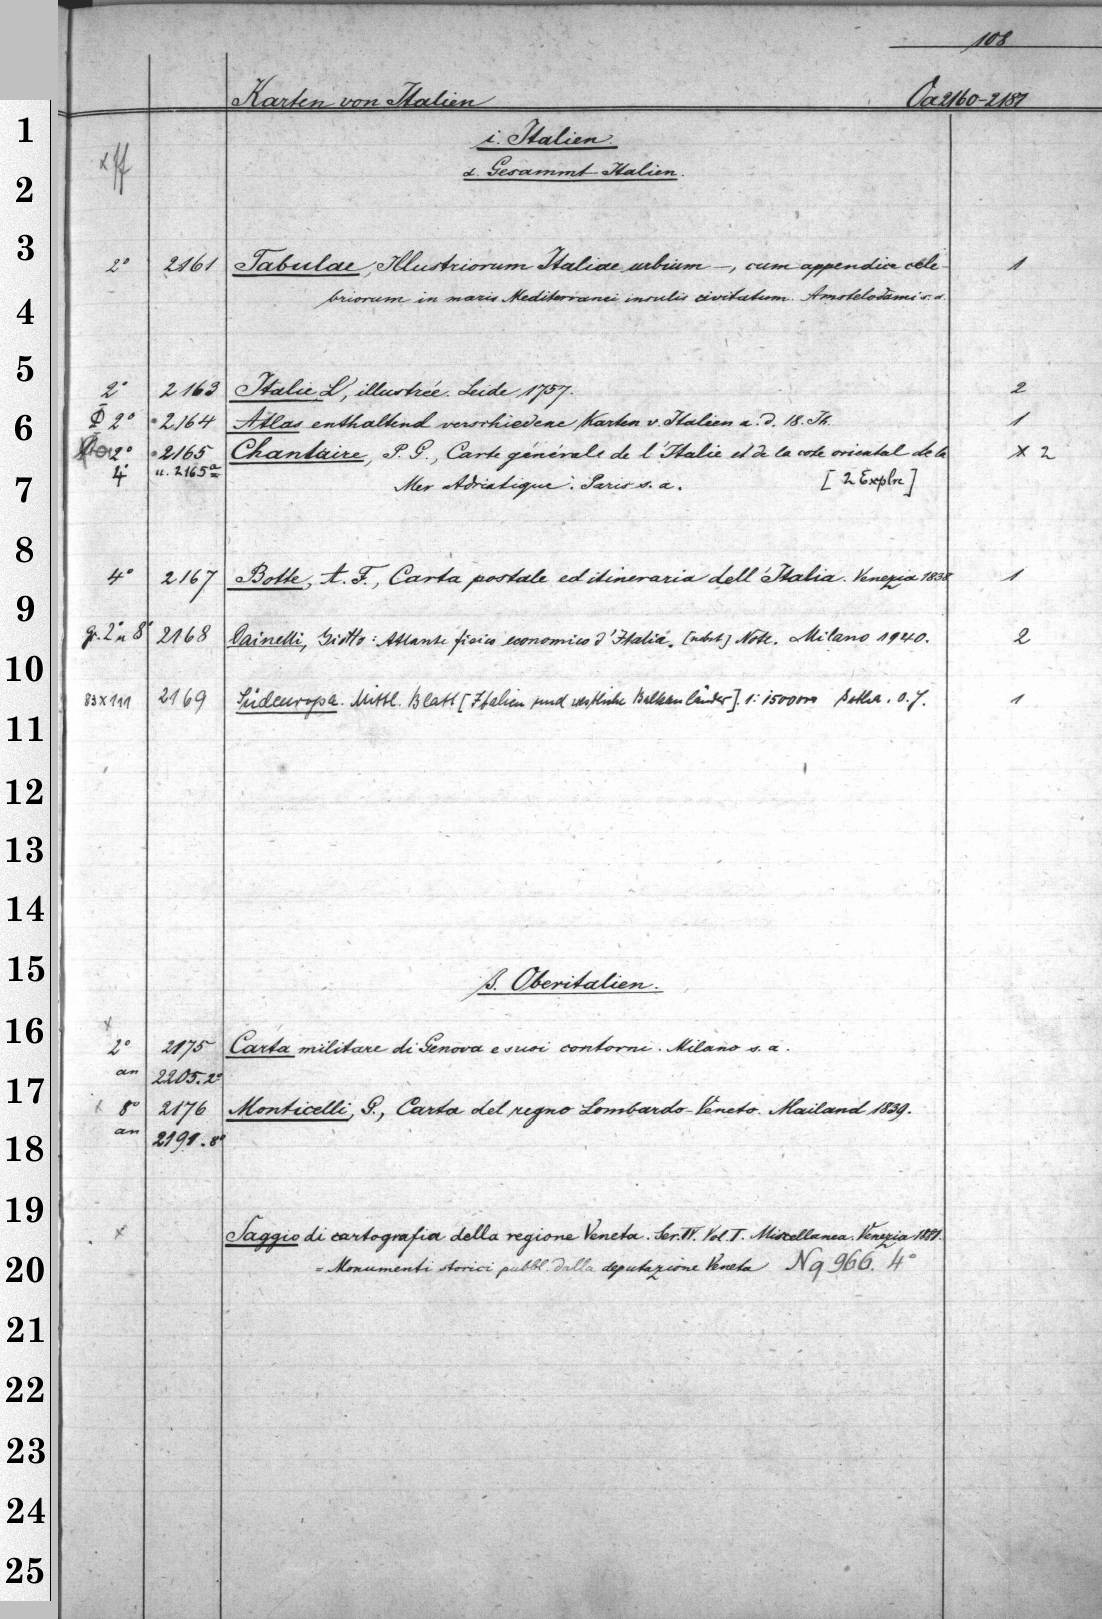 108
Karten von Italien Oa 2160-2187
i. Italien.
α. Gesammt-Italien.
2° 2161 Tabulae, Illustriorum Italiae urbium —, cum appendice cele- 1
briorum in maris Mediterranei insulis civitatum. Amstelodami s. a.
2° 2163 Italie, L', illustrée. Leide, 1757. 2
2° 2164 Atlas enthaltend verschiedene Karten v. Italien a. d. 18. Jh. 1
2° 2165 Chanlaire, P. G., Carte générale de l'Italie et de la cote oriental de la x 2
4° u. 2165a Mer Adriatique. Paris s. a. [2 Explre]
4° 2167 Botte, A. F., Carta postale ed itineraria dell' Italia. Venezia 1838 1
gr. 2° u 8° 2168 Dainelli, Giotto: Atlante fisico economico d'Italia. [nebst] Note. Milano 1940. 2
83 x 111 2169 Südeuropa. Mittl. Blatt [Italien und westliche Balkanländer]. 1:1500000 Gotha. o. J. 1
β. Oberitalien.
x
2° 2175 Carta militare di Genova e suoi contorni. Milano s. a.
an 2205.2°
8° 2176 Monticelli, G., Carta del regno Lombardo-Veneto. Mailand 1839.
an 2191.8°
x Saggio di cartografia della regione Veneta. Ser. IV. Vol. I. Miscellanea. Venezia 1881.
= Monumenti storici pubbl. dalla deputazione Veneta Nq 966. 4°
1
2
3
4
5
6
7
8
9
10
11
12
13
14
15
16
17
18
19
20
21
22
23
24
25